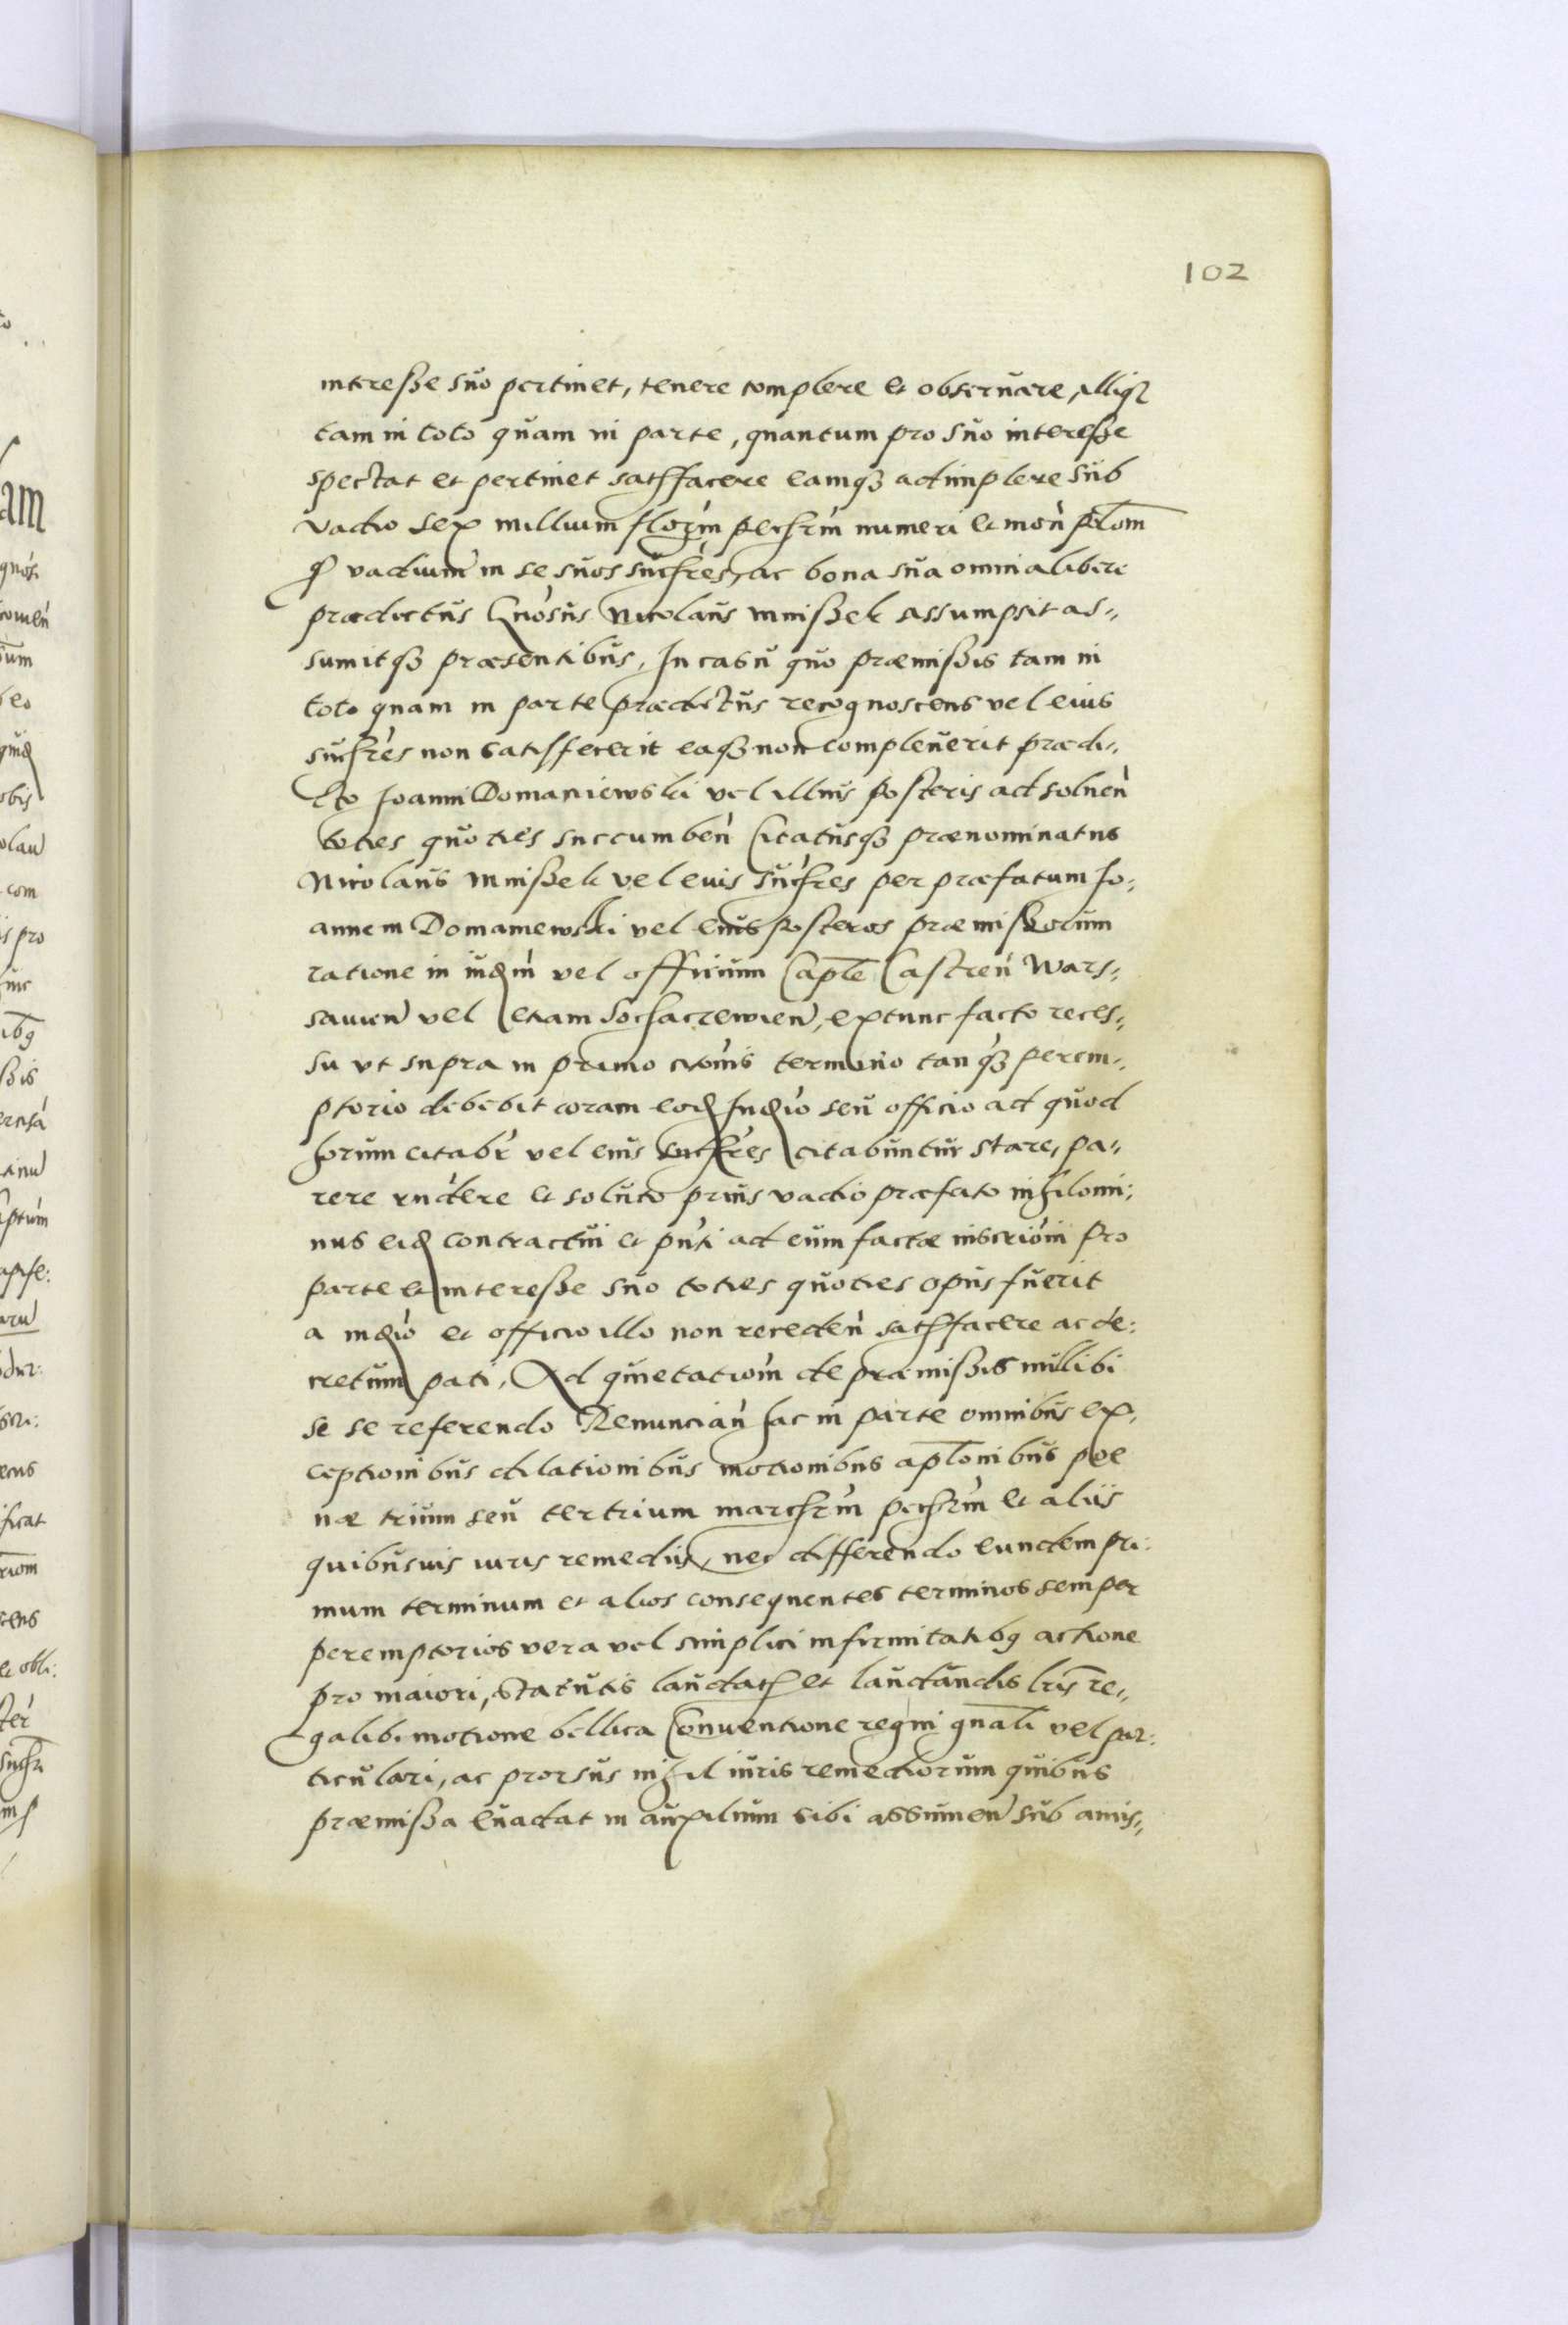 102
interesse suo pertinet, tenere complere et obseruare, illiq3
tam in toto quam in parte, quantum pro suo interesse
spectat et pertinet satisfacere eamq3 adimplere sub
vadio sex millium florm pechrm numeri et mon polom
qd vadium in se suos succres, ac bona sua omnia libere
prædictus Gnosus Nicolaus Mnißek assumpsit as„
sumitq3 præsentibus, In casu quo præmißis tam in
toto quam in parte prædictus recognoscens vel eius
succres non satisfecerit eaq3 non compleuerit prædi„
cto Joanni Domaniewski vel illius posteris ad soluen
toties quoties succumben Citatusq3 prænominatus
Nicolaus Mnißek vel eius succres per præfatum Jo:
annem Domaniewski vel eius posteros præmißorum
ratione in iudm vel officium Caplē Castren Wars„
sauien vel etiam Sochaczewien, extunc facto reces„
su vt supra in primo citonis termino tanq3 perem„
ptorio debebit coram eod Iudio seu officio ad quod
horum citabr vel eius succres citabuntur stare, pa„
rere rndere et soluto prius vadio præfato nihilomi:
nus eid contractui et pnti ad eum factæ inscrioni pro
parte et interesse suo toties quoties opus fuerit
a iudio et officio illo non receden satisfacere ac de:
cretum pati, Ad quietationm de præmißis nullibi
se se referendo Renuncian hac in parte omnibus ex,
ceptionibus dilationibus motionibus aplonibus poe
næ trium seu tertium marchrm pechrm et aliis
quibusuis iuris remediis, nec differendo eundem pri:
mum terminum et alios consequentes terminos semper
peremptorios vera vel simplici infirmitatibq actione
pro maiori, statutis laudatis et laudandis lris re„
galib: motione bellica Conuentione regni gnali vel par:
ticulari, ac prorsus nihil iuris remediorum quibus
præmißa euadat in auxilium sibi assumen sub amis„